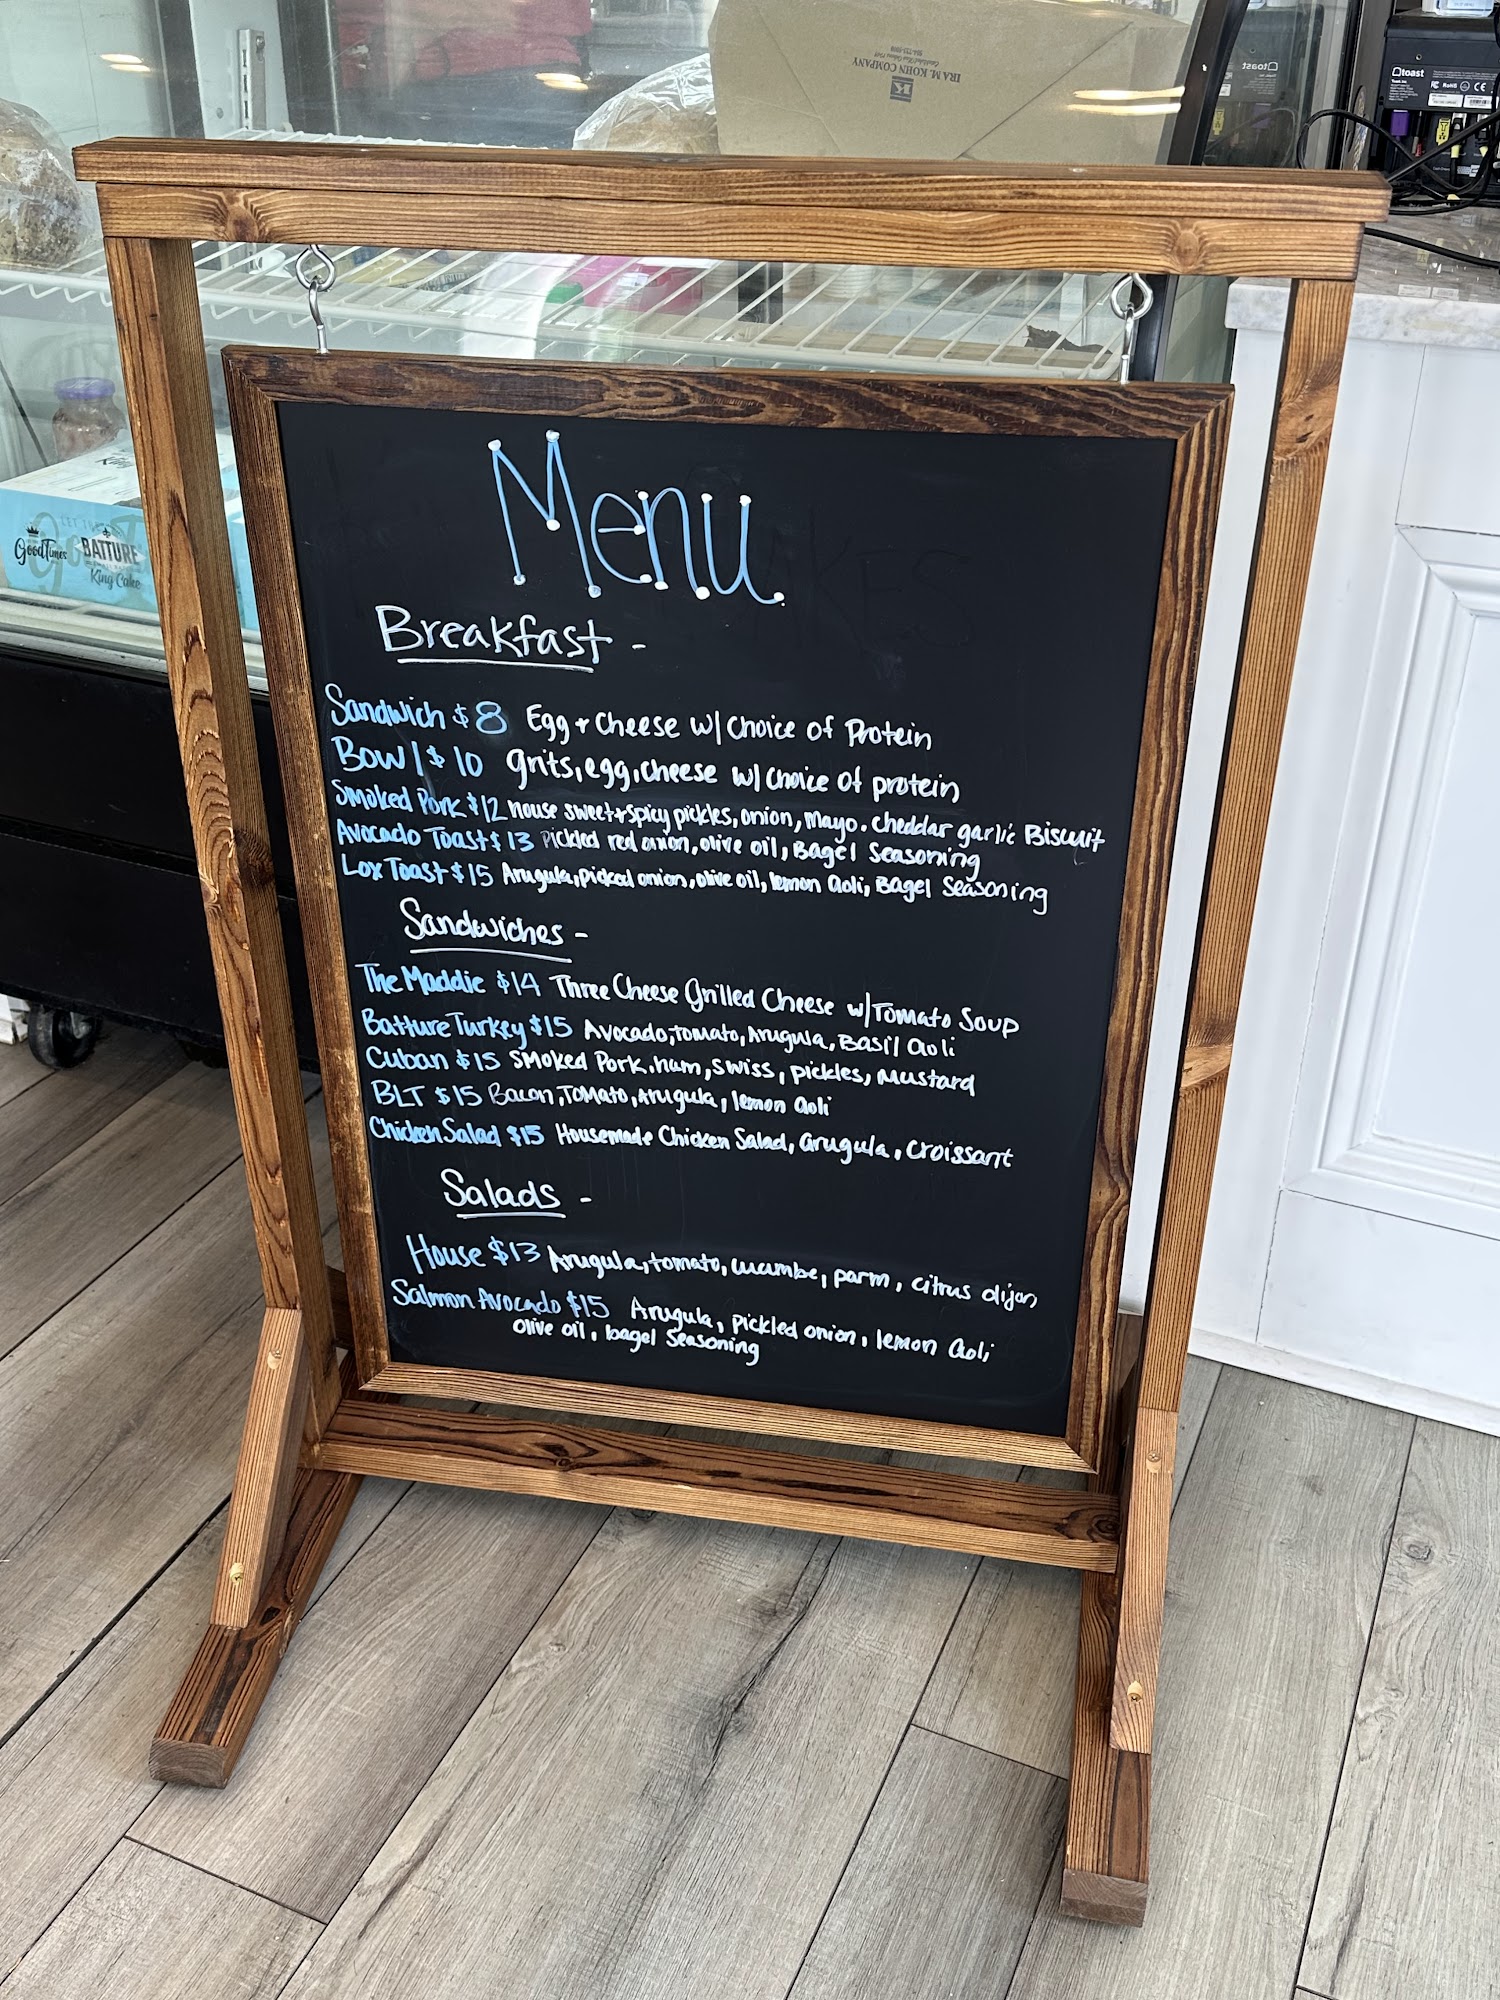 IRA M. KOHN COMPANY
toast
toast
RoHS CE
GoodTimes
BATTURE
King Cake
Menu
Breakfast -
Sandwich $8 Egg + Cheese w/ Choice of Protein
Bowl $10 grits, egg, cheese w/ choice of protein
Smoked Pork $12 house sweet+spicy pickles, onion, mayo. cheddar garlic Biscuit
Avocado Toast $13 Pickled red onion, olive oil, Bagel Seasoning
Lox Toast $15 Arugula, picked onion, olive oil, lemon aoli, Bagel Seasoning
Sandwiches -
The Maddie $14 Three Cheese Grilled Cheese w/ Tomato Soup
Batture Turkey $15 Avocado, tomato, Arugula, Basil aoli
Cuban $15 Smoked Pork, ham, swiss, pickles, mustard
BLT $15 Bacon, Tomato, Arugula, lemon aoli
Chicken Salad $15 Housemade Chicken Salad, arugula, croissant
Salads -
House $13 Arugula, tomato, cucumbe, parm, citrus dijon
Salmon Avocado $15 Arugula, pickled onion, lemon aoli,
olive oil, bagel seasoning